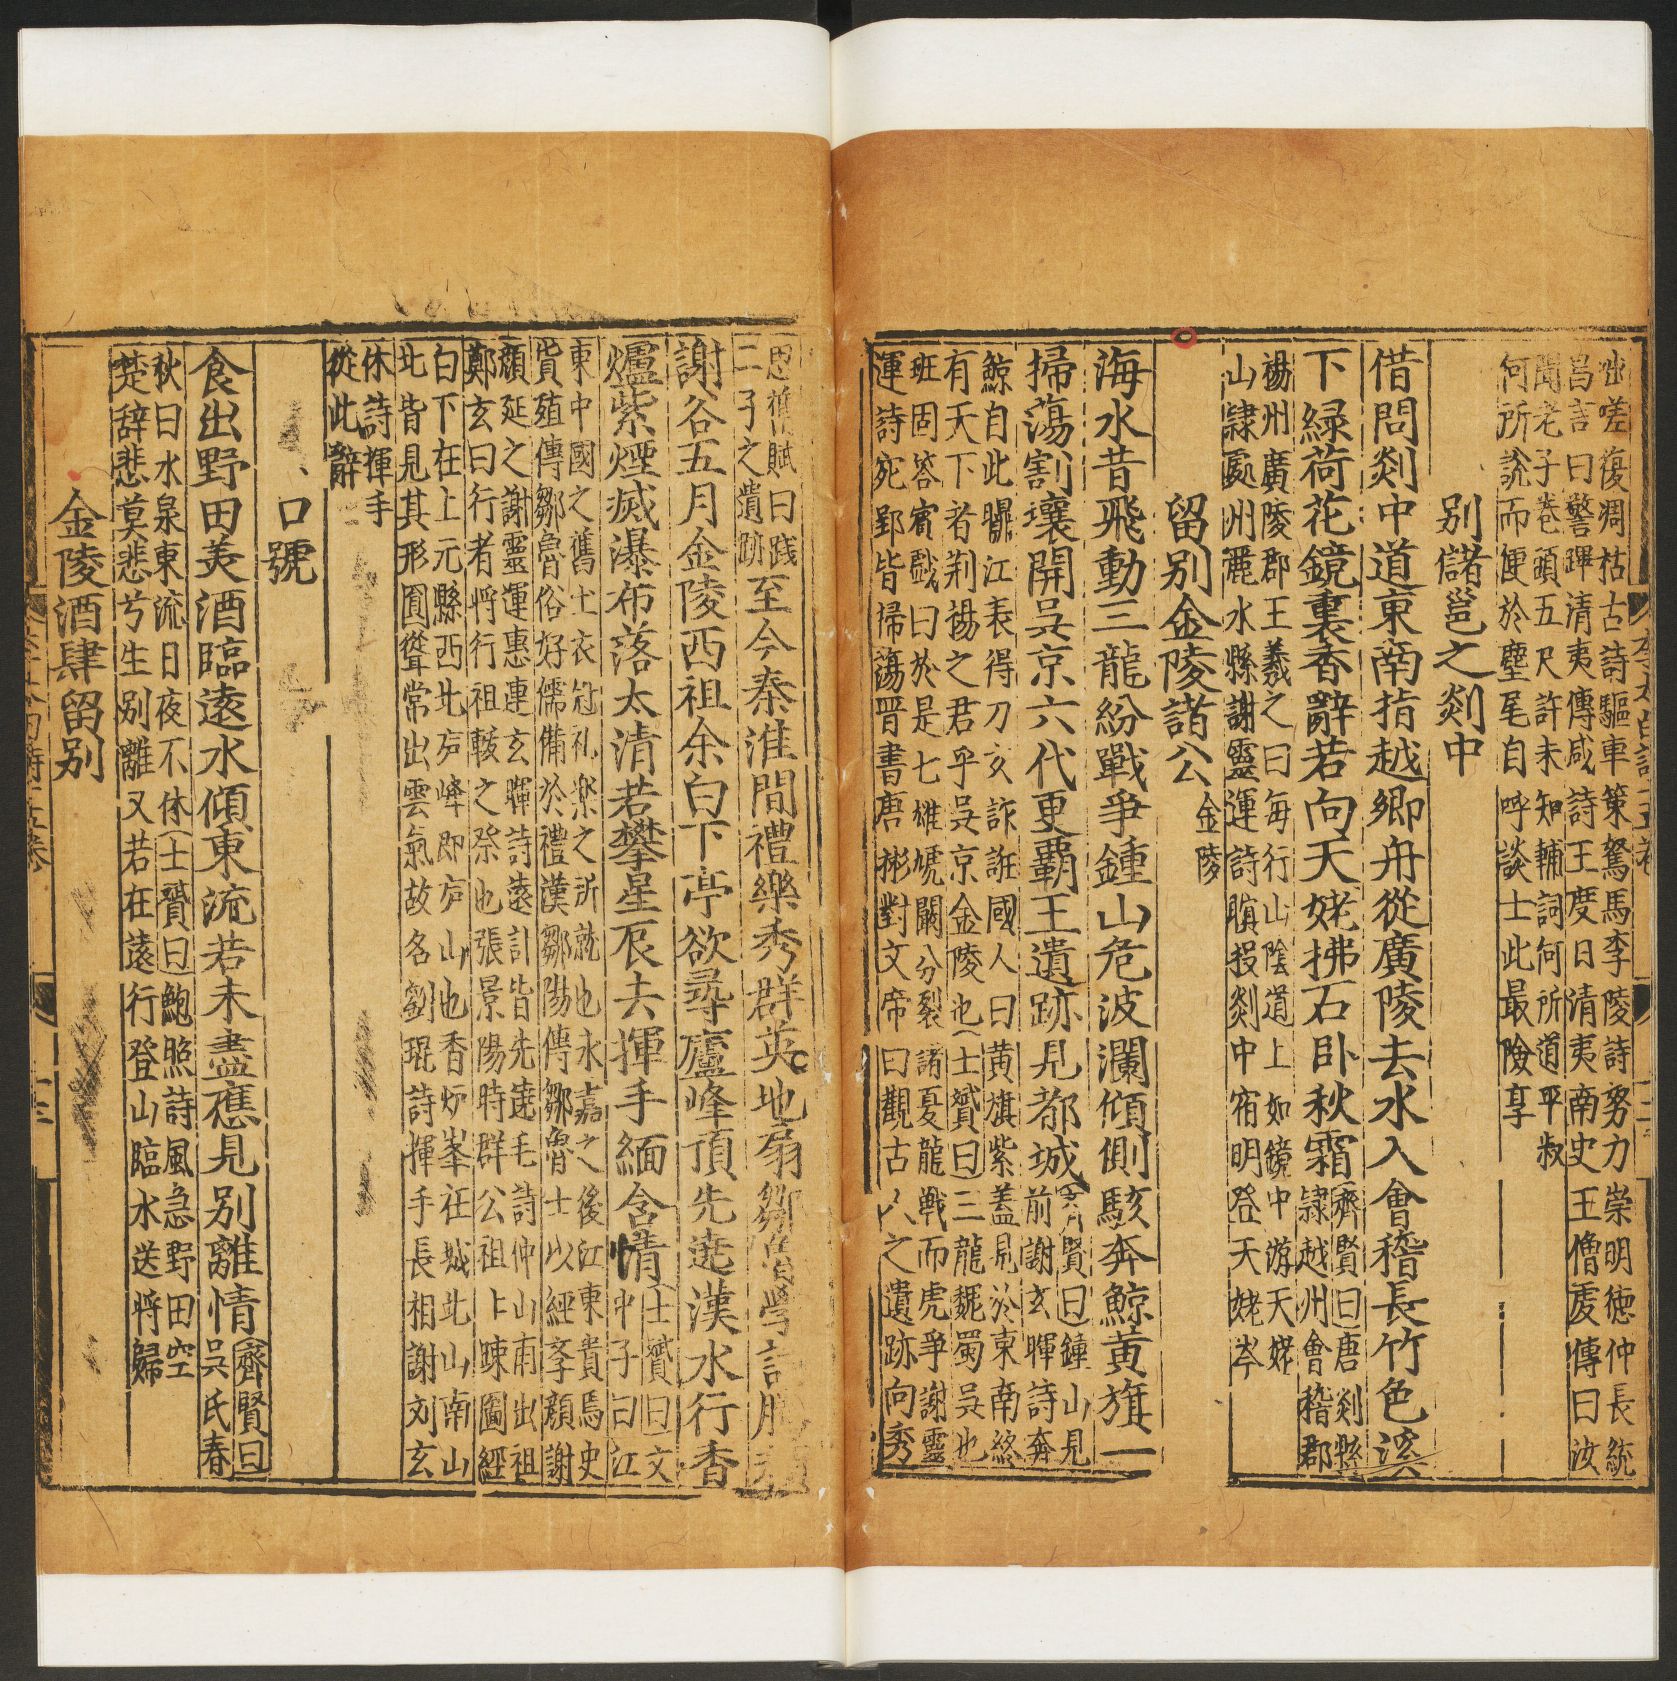 咄嗟復凋枯古詩驅車策駑馬李陵詩努力崇明德仲長統
昌言曰警蹕清夷傳咸詩王度日清夷南史王僧虔傳曰汝
聞老子卷頭五尺許未知輔詞何所道平叔
何所說而便於麈尾自呼談士此最險享
别儲邕之剡中
借問剡中道東南指越鄉舟從廣陵去水入會稽長竹色溪
下緑荷花鏡裏香辭若向天姥拂石卧秋霜
齊賢曰唐剡縣
隷越州會稽郡
楊州廣陵郡王羲之曰每行山隂道上如鏡中游天姥
山隷處州麗水縣謝靈運詩暝投剡中宿明登天姥岑
留别金陵諸公
金陵
海水昔飛動三龍紛戰爭鍾山危波瀾傾側駭奔鯨黄旗一
掃蕩割壤開吳京六代更霸王遺跡見都城
齊賢曰鍾山見
前謝玄暉詩奔
鯨自此曝江表得刀玄詐誑國人曰黄旗紫蓋見於東南終
有天下者荆楊之君乎吳京金陵也士贇曰三龍魏蜀吳也
班固答賓戲曰於是七雄虓闞分裂諸夏龍戰而虎爭謝靈
運詩宛郢皆掃蕩晋書唐彬對文帝曰觀古人之遺跡向秀
思舊賦曰踐
二子之遺跡
至今秦淮間禮樂秀群英地扇鄒魯學詩騰顔
謝名五月金陵西祖余白下亭欲尋廬峰頂先遶漢水行香
爐紫煙滅瀑布落太清若攀星辰去揮手緬含情
士贇曰文
中子曰江
東中國之舊也衣冠礼樂之所就也永嘉之後江東貴焉史
貨殖傳鄒魯俗好儒備於禮漢鄒陽傳鄒魯士以經孝顔謝
顔延之謝靈運惠連玄暉詩遠計皆先遶毛詩仲山甫出祖
鄭玄曰行者將行祖軷之祭也張景陽詩群公祖上疎圖經
白下在上元縣西北庐峰即庐山也香炉峯在城北山南山
北皆見其形圓聳常出雲氣故名劉琨詩揮手長相謝刘玄
休詩揮手
從此辭
口號
食出野田羙酒臨遠水傾東流若未盡應見别離情
齊賢曰
吳氏春
秋曰水泉東流日夜不休士贇曰鮑照詩風急野田空
楚辭悲莫悲兮生别離又若在遠行登山臨水送將歸
金陵酒肆留别